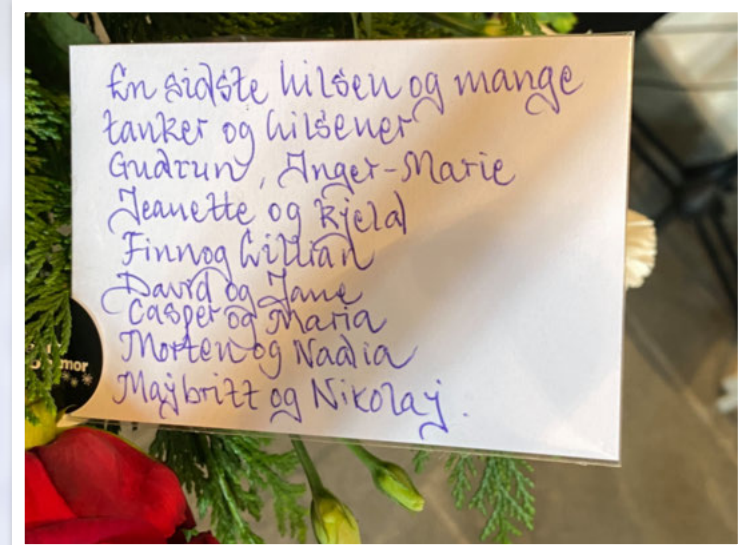 En sidste hilsen og mange
tanker og hilsener
Gudrun, Inger-Marie
Jeanette og Kjeld
Finn og Lillian
David og Jane
Casper og Maria
Morten og Nadia
Maybritt og Nikolaj.
mor